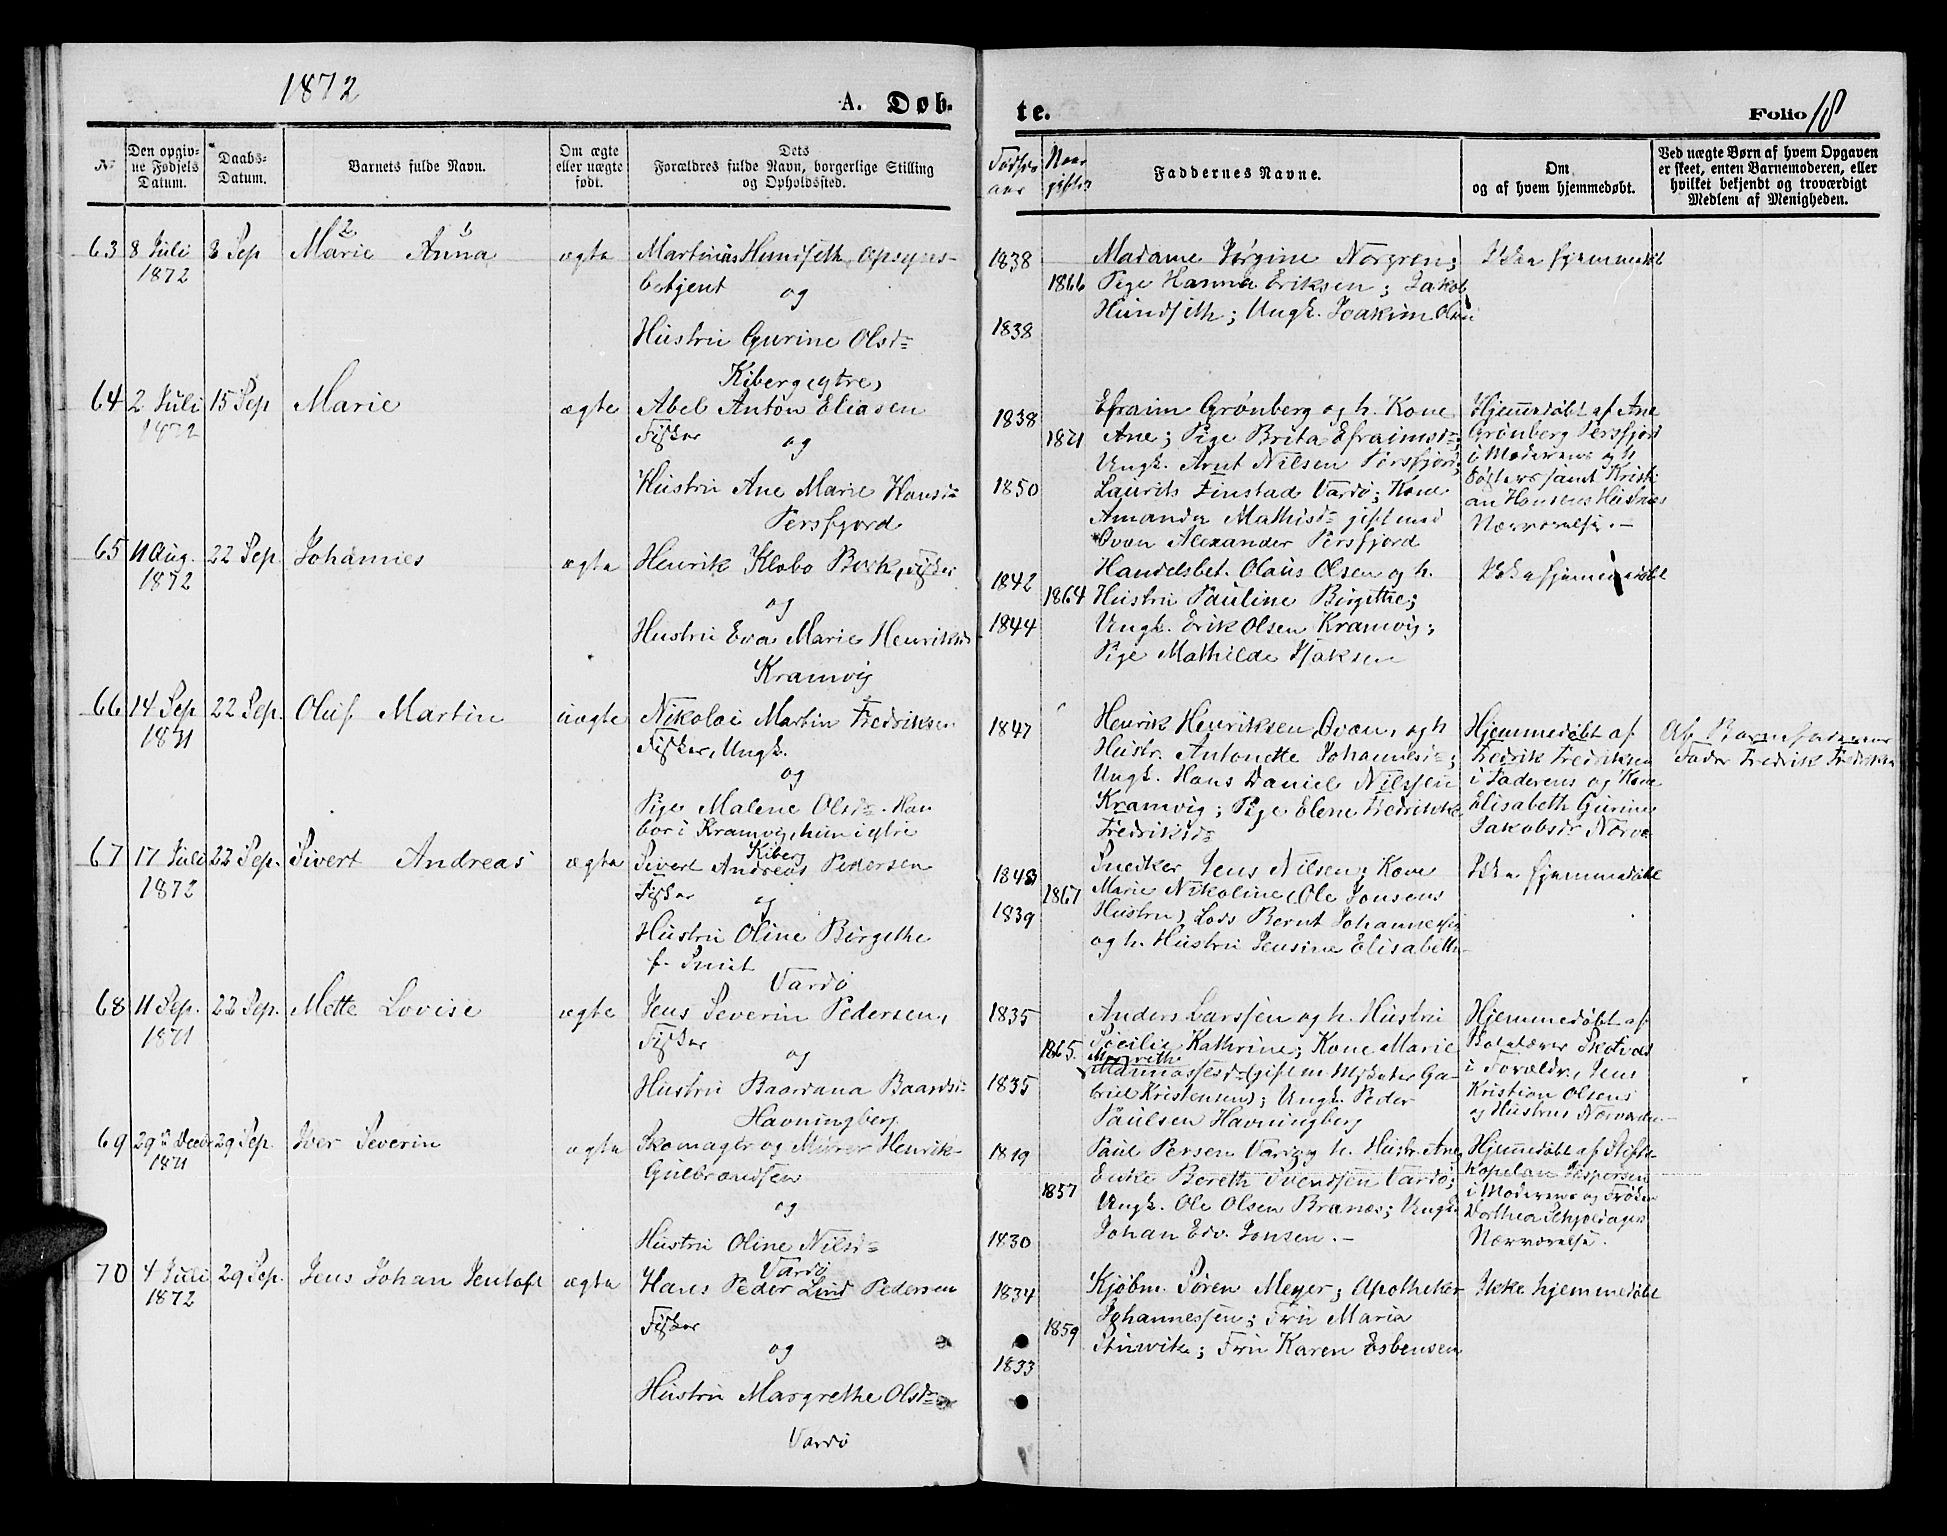 1872
A. Døb-
te.
Folio 18
No
Den opgiv-
ne Fødsels
Datum.
Daabs-
Datum.
Barnets fulde Navn.
Om ægte
eller uægte
født.
Dets
Forældres fulde Navn, borgerlige Stilling
og Opholdssted.
Fødsels
aar
Naar
gifte
Faddernes Navne.
Om
og af hvem hjemmedøbt.
Ved uægte Børn af hvem Opgaven
er skeet, enten Barnemoderen, eller
hvilket bekjendt og troværdigt
Medlem af Menigheden.
63 8 Juli 8 Sep Marie Anna ægte
1872
2 1
Martinus Hundseth, Opsyns-
betjent og
Hustru Gurine Olsd=
Kiberg (ytre)
1838
1866
1838
Madame Jørgine Norgren;
Pige Hanna Eriksen; Jakob
Hundseth; Ungk. Joakim
Ikke hjemmedøbt
64 2 Juli 15 Sep Marie ægte
1872
Abel Anton Eliasen
Fisker og
Hustru Ane Marie Hansd=
Persfjord
1838
1871
1850
Efraim Grønberg og h. Kone
Ane; Pige Brita Efraimsd=;
Ungk. Arnt Nilsen Persfjord;
Laurits Finstad Vardø; Kone
Amanda Mathisd= gift med
Qvæn Alexander Persfjord
Hjemmedøbt af Ane
Grønberg Persfjord
i Moderens og h.
Søsters samt Kristi
an Hansens Hustrus
Nærværelse.-
65 11 Aug. 22 Sep. Johannes ægte
1872
Henrik Klobo Bork, Fisker
og
Hustru Eva Marie Henriksd
Kramvig
1842
1864
1844
Handelsbet. Olaus Olsen og h.
Hustru Pauline Birgithe;
Ungk. Erik Olsen Kramvig;
Pige Mathilde Isaksen
Ikke hjemmedøbt
66 14 Sep 22 Sep. Oluf Martin uægte
1871
Nikolai Martin Fredriksen
Fisker, Ungk.
og
Pige Malene Olsd=. Han
bor i Kramvig, hun i ytre
Kiberg
1847
Henrik Henriksen, Qvæn, og h
Hustr. Antonette Johannesd=;
Ungk. Hans Daniel Nilssen
Kramvig; Pige Elene Fredrikke
Fredriksd=
Hjemmedøbt af
Fredrik Fredriksen
i Faderens og Kone
Elisabeth Gurine
Jakobsdr Nærvæ
Af Barnefaderens
Fader Fredrik Fredriksen
67 17 Juli 22 Sep. Sivert Andreas ægte
1872
Sivert Andreas Pedersen
Fisker og
Hustru Oline Birgethe
f. Smit
Vardø
1843
1867
1839
Snedker Jens Nilsen; Kone
Marie Nikoline (Ole Jonsens
Hustru), Lods Bernt Johannesen
og h. Hustru Jensine Elisabeth
Ikke hjemmedøbt
68 11 Sep. 22 Sep. Mette Lovise ægte
1871
Jens Severin Pedersen,
Fisker og
Hustru Baardana Baardsd=
Havningberg
1835
1865.
1835
Anders Larssen og h. Hustru
Sicilie Kathrine; Kone Marie
Margrethe
Mannassesd= (gift m Ga-
briel Kristensen); Ungk. Peder
Paulsen Havningberg
Hjemmedøbt af
i Forældr., Jens
Kristian Olsens
og Hustrus Nærværelse
69 29de Decbr 29 Sep. Iver Severin ægte
1871
Skomager og Murer Henrik
Gulbrandsen
og
Hustru Oline Nilsd=
Vardø
1819
1857
1830
Paul Persen Vardø og h. Hustr. Ane,
Enke Bereth Svendsen Vardø;
Ungk. Ole Olsen Branæs; Ungk.
Johan Edv. Jonsen.-
Hjemmedøbt af Stifts-
kapelan Jespersen
i Moderens og Frøken
Dorthea Schjoldagers
Nærværelse.
70 4 Juli 29 Sep. Jens Johan Jentoft ægte
1872
Hans Peder Lind Pedersen
Fisker
og
Hustru Margrethe Olsd=
Vardø
1834
1859
1833
Kjøbm. Søren Meyer; Apotheker
Johannessen; Fru Maria
Stinvik; Fru Karen Esbensen
Ikke hjemmedøbt